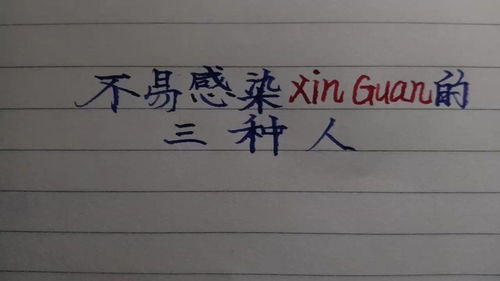 不易感染xin Guan的
三种人